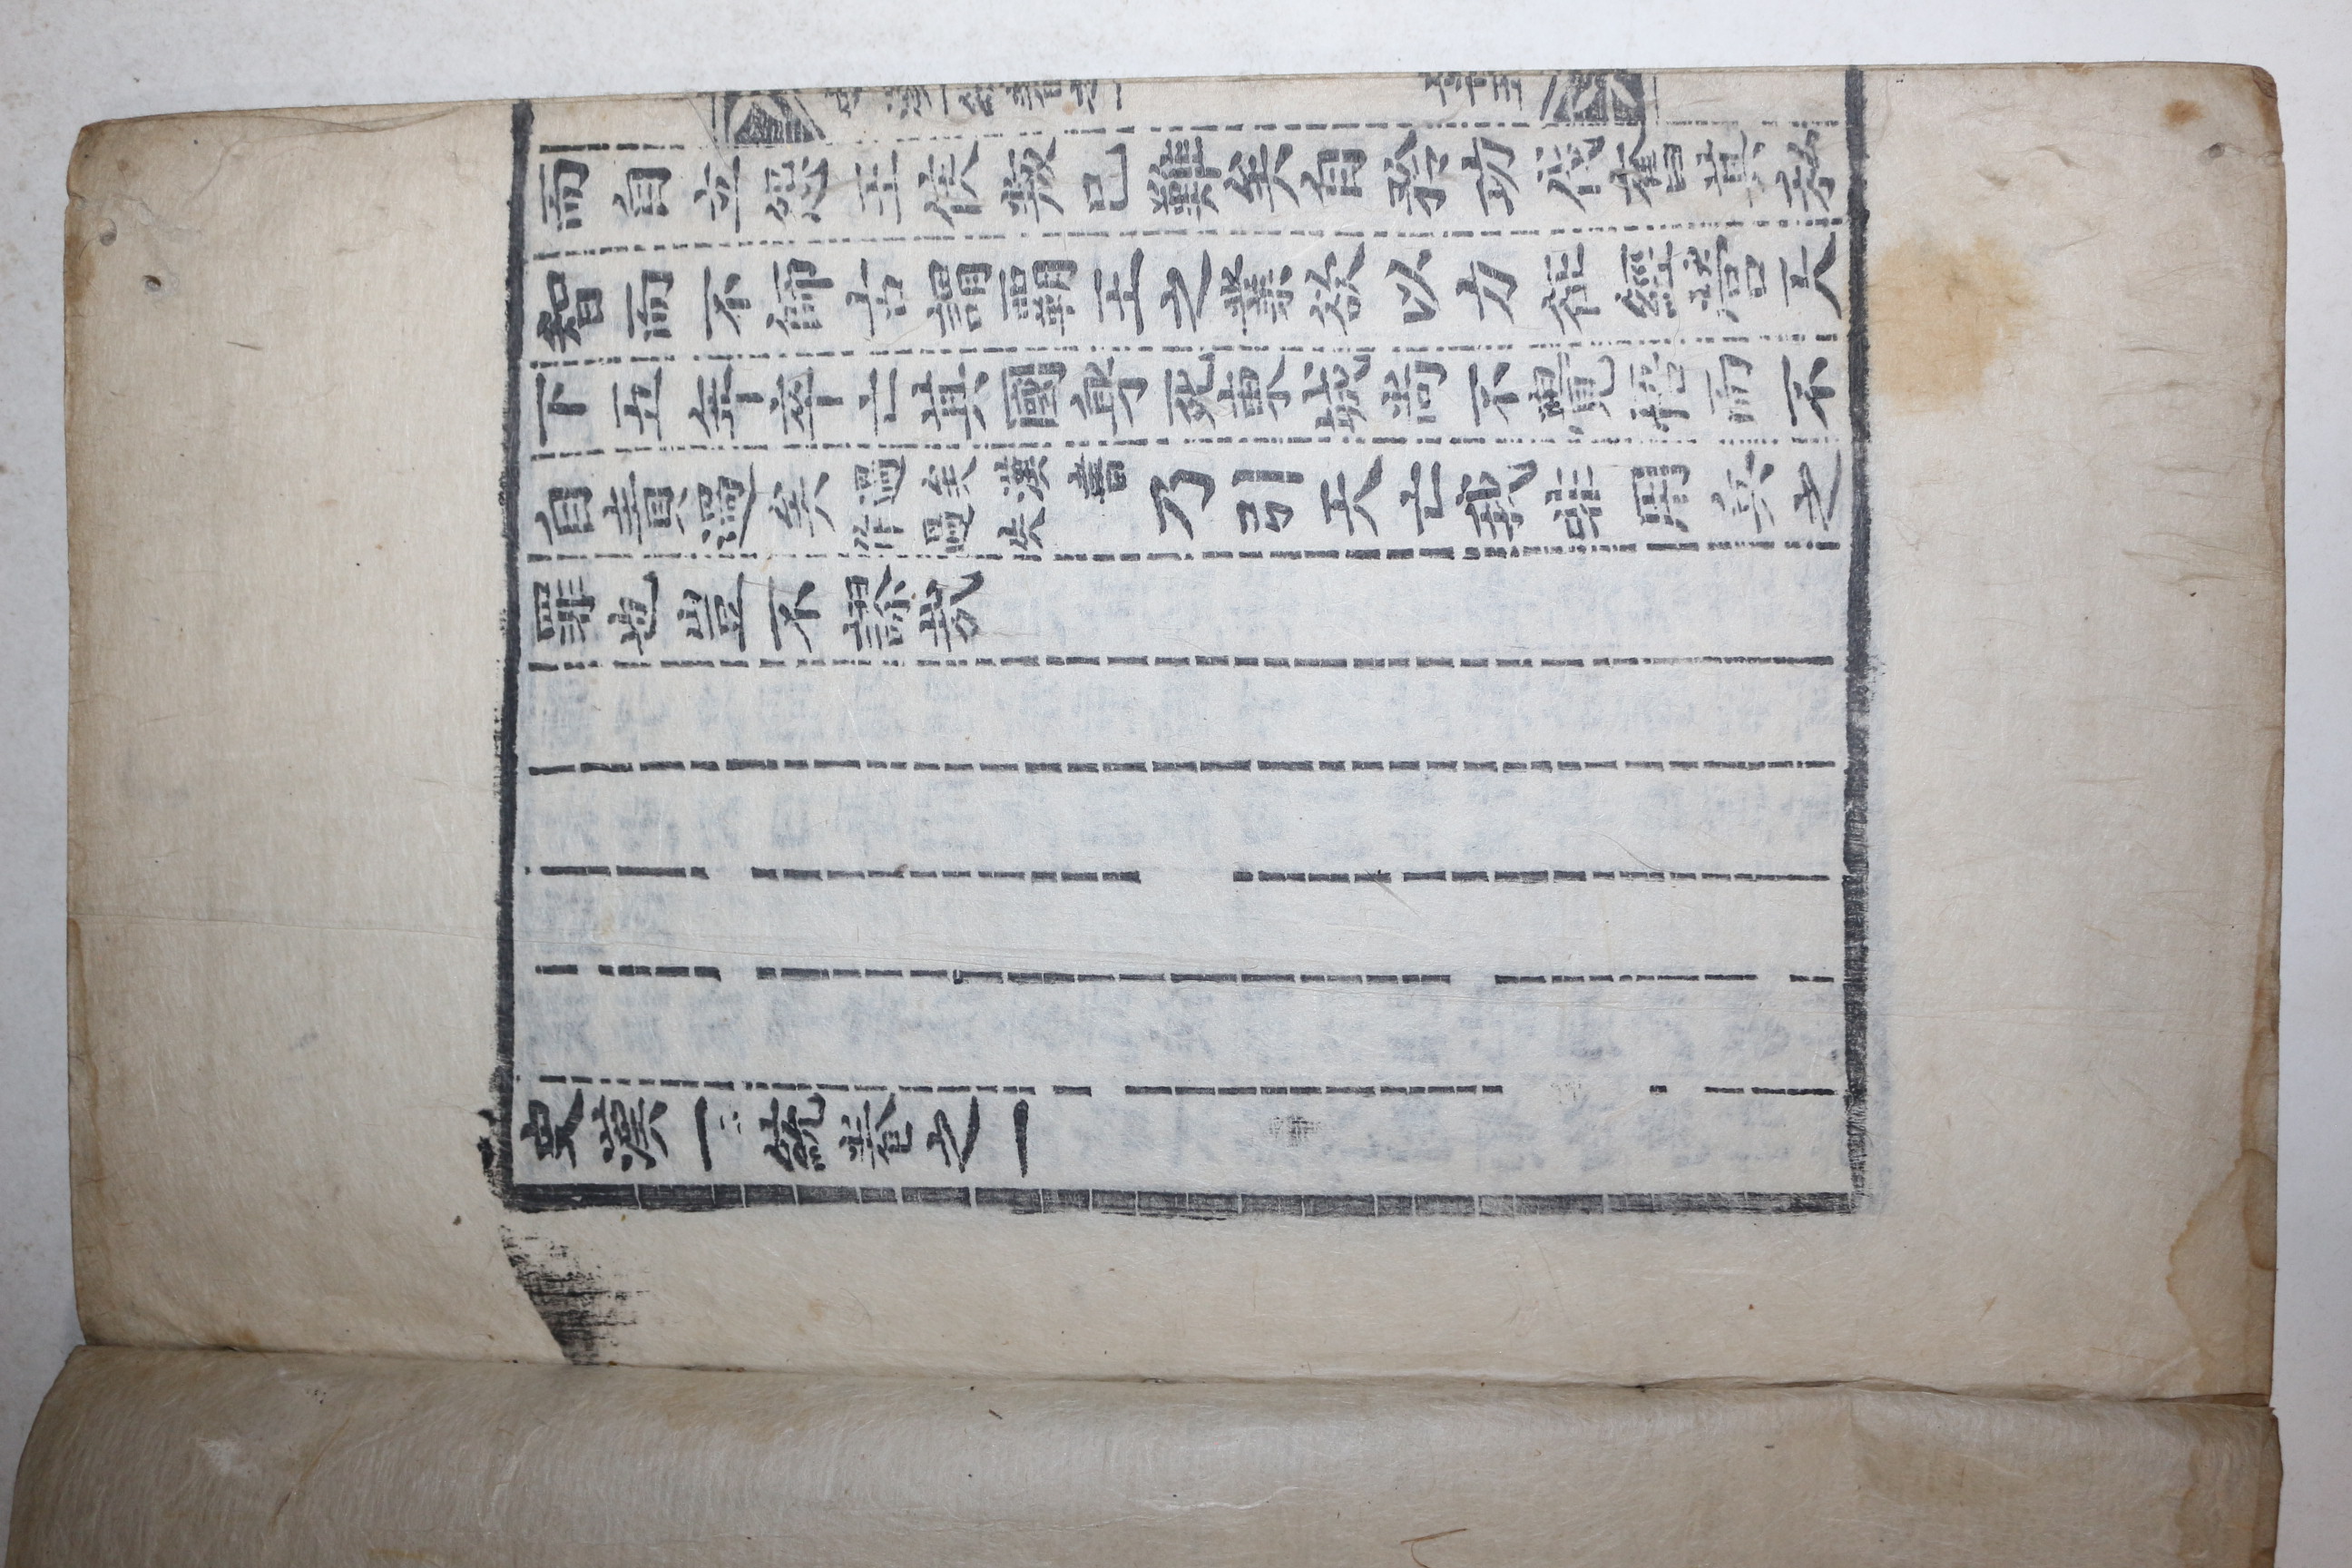 而自立怨王侯叛己難矣自矜功伐奮其私
智而不師古謂霸王之業欲以力征經營天
下五年卒亡其國身死東城尚不覺悟而不
自責過矣過矣漢書作過失乃引天亡我非用兵之
罪也豈不謬哉
史漢一統卷之一